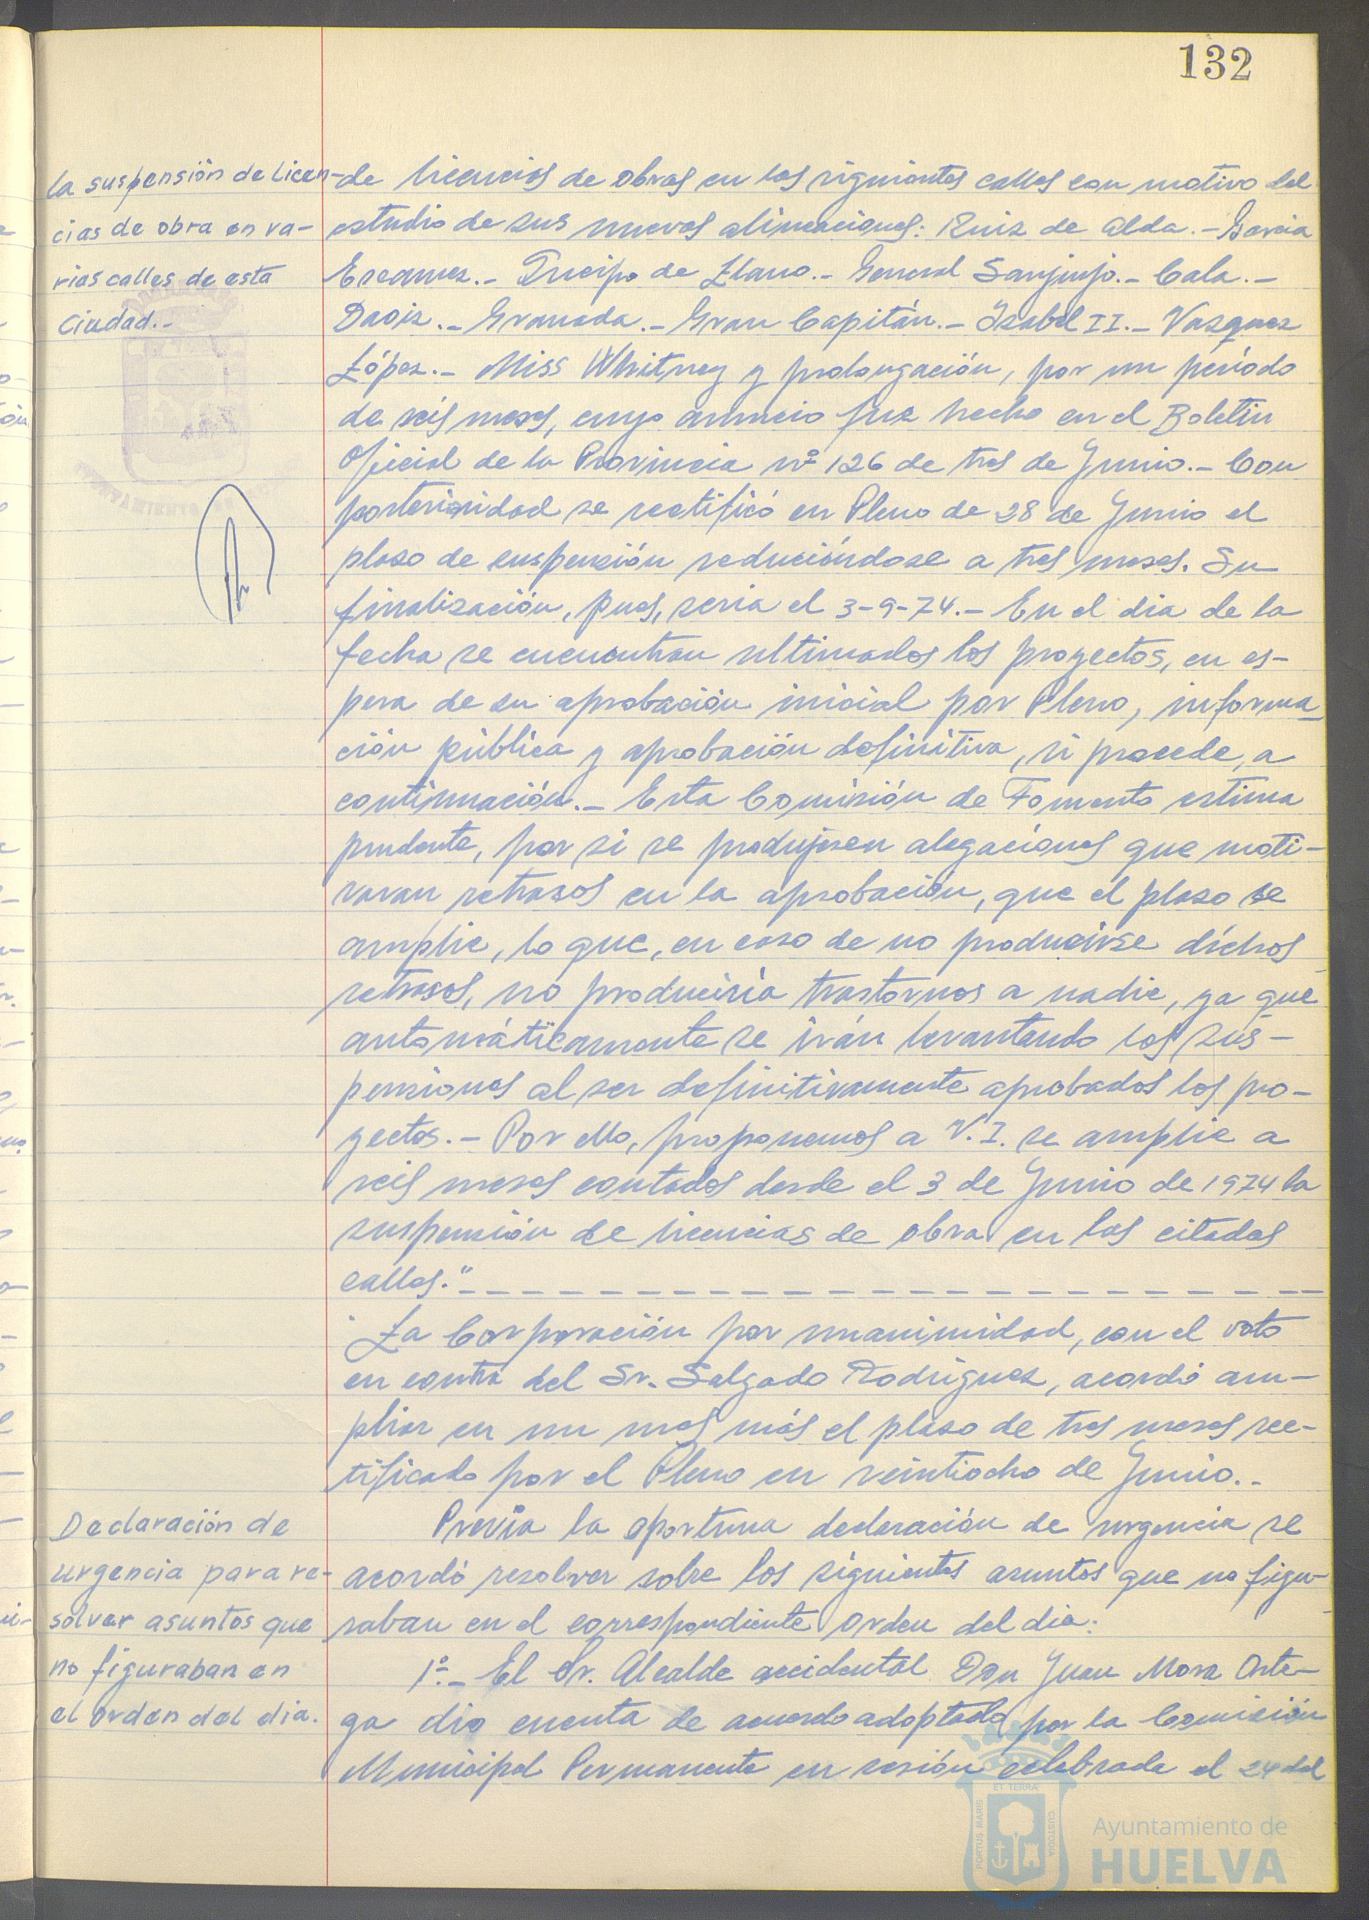 132
la suspensión de licen-
cias de obra en va-
rias calles de esta
Ciudad.-
de licencias de obras en las siguientes calles con motivo del
estudio de sus nuevas alineaciones: Ruiz de Alda.- Garcia
Escamez.- Queipo de Llano.- General Sanjurjo.- Cala.-
Daoiz.- Granada.- Gran Capitán.- Isabel II.- Vazquez
López.- Miss Whitney y prolongación, por un período
de seis meses, cuyo anuncio fue hecho en el Boletin
Oficial de la Provincia nº 126 de tres de Junio.- Con
posterioridad se rectificó en Pleno de 28 de Junio el
plazo de suspensión reduciéndose a tres meses. Su
finalización, pues, seria el 3-9-74.- En el dia de la
fecha se encuentran ultimados los proyectos, en es-
pera de su aprobación inicial por Pleno, informa-
ción pública y aprobación definitiva, si procede, a
continuación.- Esta Comisión de Fomento estima
prudente, por si se produjesen alegaciones que moti-
varan retrasos en la aprobación, que el plazo se
amplie, lo que, en caso de no producirse dichos
retrasos, no produciria trastornos a nadie, ya que
automáticamente se irán levantando las sus-
pensiones al ser definitivamente aprobados los pro-
yectos.- Por ello, proponemos a V.I. se amplie a
seis meses contados desde el 3 de Junio de 1974 la
suspensión de licencias de obra en las citadas
calles."
La Corporación por unanimidad, con el voto
en contra del Sr. Salgado Rodriguez, acordó am-
pliar en un mes más el plazo de tres meses rec-
tificado por el Pleno en veintiocho de Junio.-
Declaración de
urgencia para re-
solver asuntos que
no figuraban en
el orden del dia.
Previa la oportuna declaración de urgencia se
acordó resolver sobre los siguientes asuntos que no figu-
raban en el correspondiente orden del dia:
1º.- El Sr. Alcalde accidental Don Juan Mora Orte-
ga dio cuenta de acuerdo adoptado por la Comisión
Municipal Permanente en sesión celebrada el 24 del
PORTUS MARIS
ET TERRA
CUSTODIA
Ayuntamiento de
HUELVA